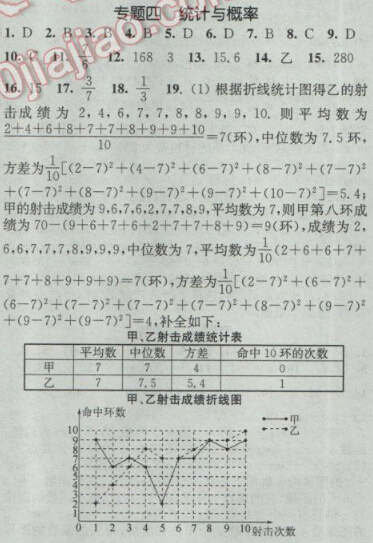 专题四 统计与概率
1. D 2. B 3. B 4. B 5. D 6. D 7. B 8. C 9. D
10. C 11. 12. 168 3 13. 15.6 14. 乙 15. 280
16. 15 17. 3/7 18. 1/3 19. (1) 根据折线统计图得乙的射
击成绩为 2, 4, 6, 7, 7, 8, 8, 9, 9, 10. 则平均数为
(2+4+6+8+7+7+8+9+9+10)/10=7(环),中位数为 7.5 环,
方差为1/10[(2-7)²+(4-7)²+(6-7)²+(8-7)²+(7-7)²
+(7-7)²+(8-7)²+(9-7)²+(9-7)²+(10-7)²]=5.4;
甲的射击成绩为9,6,7,6,2,7,7,8,9,平均数为7,则甲第八环成
绩为 70-(9+6+7+6+2+7+7+8+9)=9(环),成绩为 2,
6,6,7,7,7,8,9,9,9,中位数为 7,平均数为1/10(2+6+6+7+
7+7+8+9+9+9)=7(环),方差为1/10[(2-7)²+(6-7)²+
(6-7)²+(7-7)²+(7-7)²+(7-7)²+(8-7)²+(9-7)²
+(9-7)²+(9-7)²]=4,补全如下:
甲、乙射击成绩统计表
平均数 中位数 方差 命中 10 环的次数
甲 7 7 4 0
乙 7 7.5 5.4 1
甲、乙射击成绩折线图
命中环数
甲
乙
10
9
8
7
6
5
4
3
2
1
0 1 2 3 4 5 6 7 8 9 10 射击次数